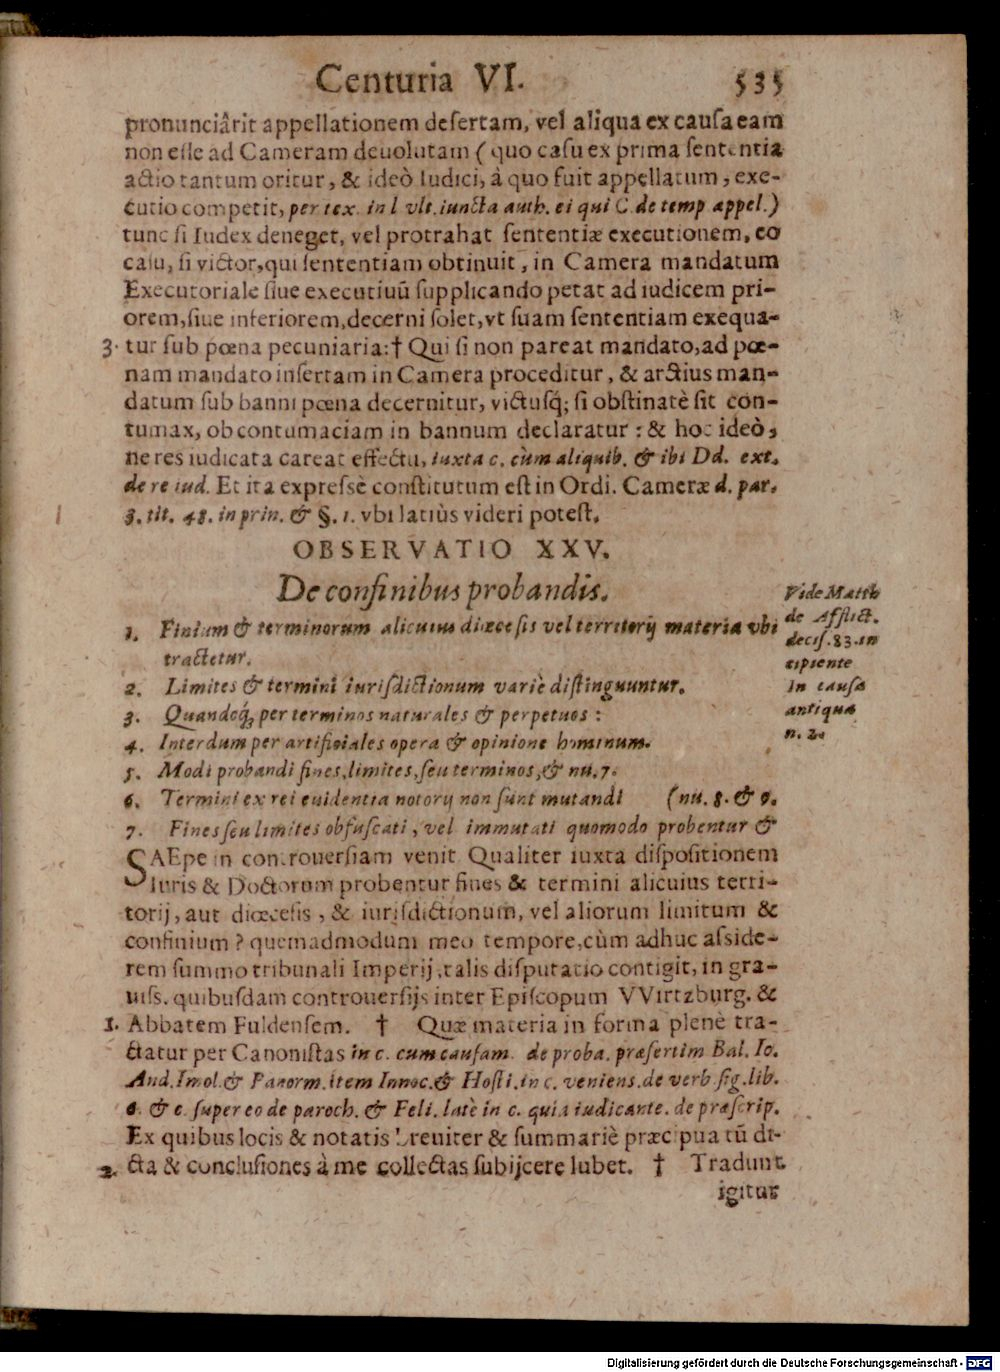 Centuria VI. 535
pronunciârit appellationem desertam, vel aliqua ex causa eam
non esse ad Cameram deuolutam ( quo casu ex prima sententia
actio tantum oritur, & ideò Iudici, à quo fuit appellatum, exe-
cutio competit, per tex. in l vlt. iuncta auth. ei qui C. de temp. appel.)
tunc si Iudex deneget, vel protrahat sententiæ executionem, eo
casu, si victor, qui sententiam obtinuit, in Camera mandatum
Executoriale siue executiuũ supplicando petat ad iudicem pri-
orem, siue inferiorem, decerni solet, vt suam sententiam exequa-
3. tur sub pœna pecuniaria: † Qui si non pareat mandato, ad pœ-
nam mandato insertam in Camera proceditur, & arctius man-
datum sub banni pœna decernitur, victusq́; si obstinatè sit con-
tumax, ob contumaciam in bannum declaratur : & hoc ideò,
ne res iudicata careat effectu, iuxta c. cùm aliquib. & ibi Dd. ext.
de re iud. Et ita expressè constitutum est in Ordi. Cameræ d. par.
3. tit. 48. in prin. & §. 1. vbi latiùs videri potest.
OBSERVATIO XXV.
De confinibus probandis.
1. Finium & terminorum alicuius diœcesis vel territorij materia vbi
tractetur.
2. Limites & termini iurisdictionum variè distinguuntur.
3. Quandoq́; per terminos naturales & perpetuos :
4. Interdum per artificiales opera & opinione hominum.
5. Modi probandi fines, limites, seu terminos, & nu. 7.
6. Termini ex rei euidentia notorij non sunt mutandi (nu. 8. & 9.
7. Fines seu limites obfuscati, vel immutati quomodo probentur &
Vide Matth
de Afflict.
decis. 83. in
cipiente
In causa
antiqua
n. 2.
SAEpe in controuersiam venit Qualiter iuxta dispositionem
Iuris & Doctorum probentur fines & termini alicuius terri-
torij, aut diœcesis, & iurisdictionum, vel aliorum limitum &
confinium ? quemadmodum meo tempore, cùm adhuc asside-
rem summo tribunali Imperij, talis disputatio contigit, in gra-
uiss. quibusdam controuersijs inter Episcopum VVirtzburg. &
1. Abbatem Fuldensem. † Quæ materia in forma plenè tra-
ctatur per Canonistas in c. cum causam. de proba. præsertim Bal. Io.
And. Imol. & Panorm. item Innoc. & Hosti. in c. veniens. de verb. sig. lib.
6. & c. super eo de paroch. & Feli. latè in c. quia iudicante. de præscrip.
Ex quibus locis & notatis breuiter & summariè præcipua tũ di-
2. cta & conclusiones à me collectas subijcere lubet. † Tradunt
igitur
Digitalisierung gefördert durch die Deutsche Forschungsgemeinschaft - DFG